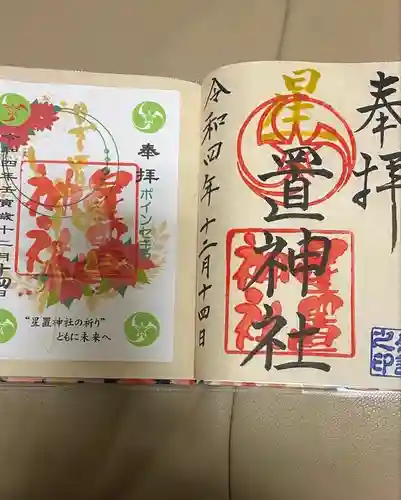 奉拝
星置神社
星置神社
令和四年十二月十四日
奉拝
ポインセチア
星置神社
令和四年壬寅歳十二月十四日
"星置神社の祈り"
ともに未来へ